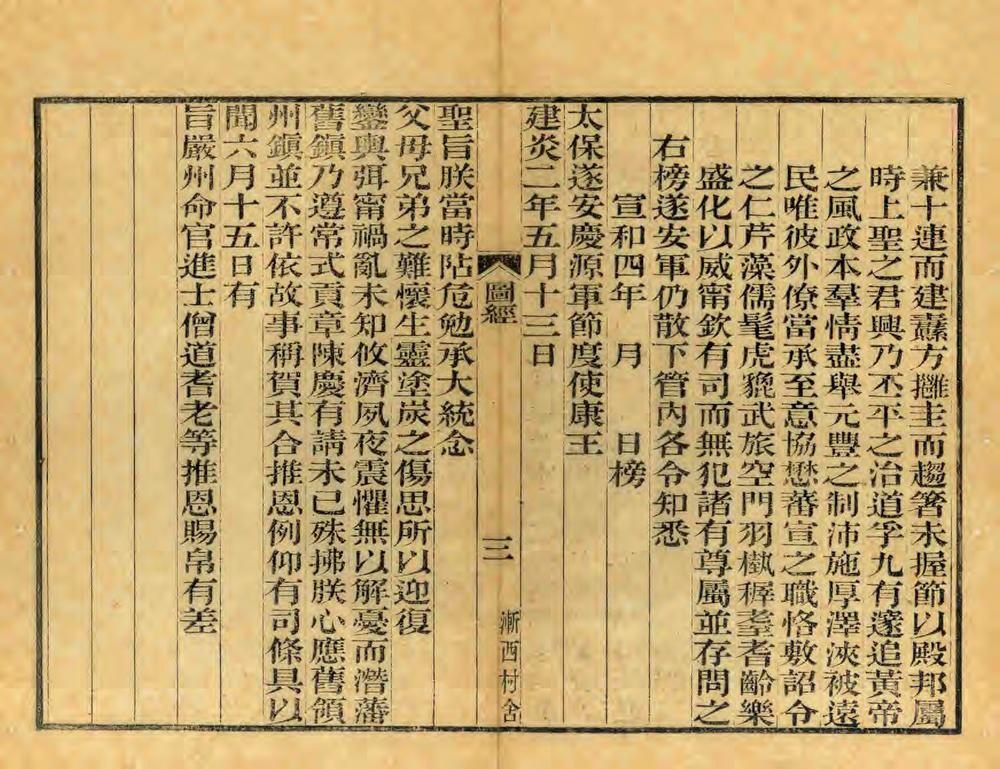 兼十連而建纛方摊圭而趨箬未握節以殿邦屬
時上聖之君興乃丕平之治道孚九有邃追黃帝
之風政本羣情盡舉元豐之制沛施厚澤浹被遠
民唯彼外僚當承至意協懋蕃宣之職恪敷詔令
之仁芹藻儒髦虎貔武旅空門羽檄稺耋耆齡樂
盛化以威甯欽有司而無犯諸有尊屬並存問之
右榜遂安軍仍散下管內各令知悉
宣和四年 月 日榜
太保遂安慶源軍節度使康王
建炎二年五月十三日
圖經 三 漸西村舍
聖旨朕當時阽危勉承大統念
父母兄弟之難懷生靈塗炭之傷思所以迎復
鑾輿弭甯禍亂未知攸濟夙夜震懼無以解憂而潛藩
舊鎭乃遵常式貢章陳慶有請未已殊拂朕心應舊領
州鎭並不許依故事稱賀其合推恩例仰有司條具以
聞六月十五日有
旨嚴州命官進士僧道耆老等推恩賜帛有差